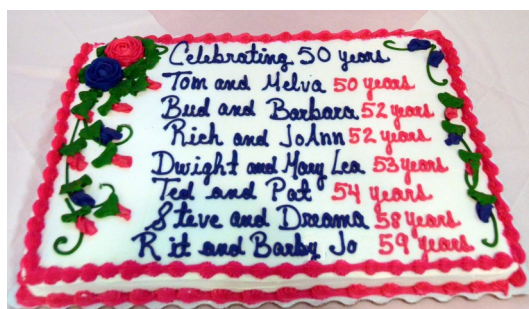 Celebrating 50 years
Tom and Melva 50 years
Bud and Barbara 52 years
Rich and JoAnn 52 years
Dwight and Mary Lea 53 years
Ted and Pat 54 years
Steve and Dreama 58 years
Rit and Barby Jo 59 years